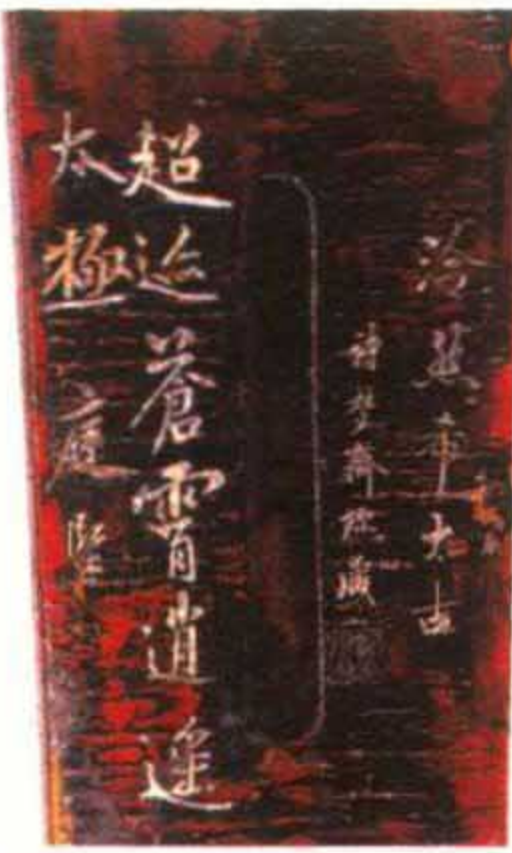 泠然希太古
詩夢齋珍藏
超迹蒼霄逍遥
太極庭堅